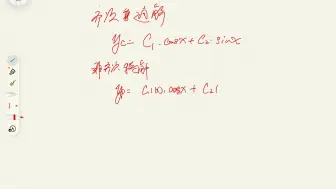 齐次通解
yc = C₁·cosx + C₂·sinx
非齐次特解
yp = C₁(x)·cosx + C₂(